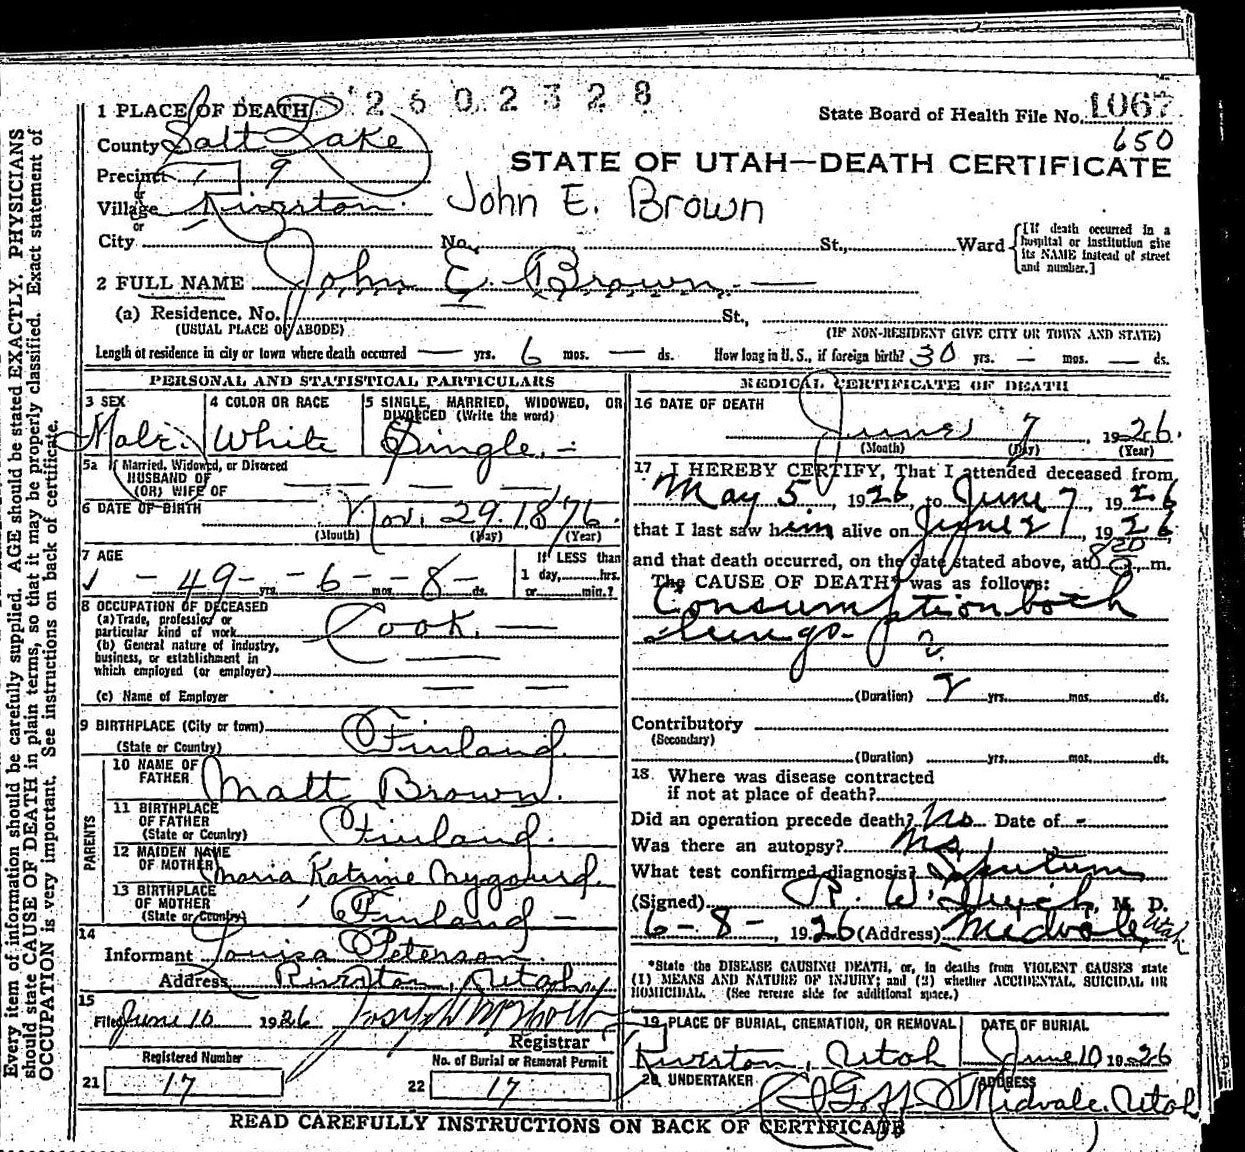 2602328
1 PLACE OF DEATH
State Board of Health File No. 1067
650
County Salt Lake
STATE OF UTAH—DEATH CERTIFICATE
Precinct 1 9
or
Village Riverton.
John E. Brown
or
City No. St., Ward
[If death occurred in a hospital or institution give its NAME instead of street and number.]
2 FULL NAME John E. Brown.
(a) Residence. No. St.,
(USUAL PLACE OF ABODE) (IF NON-RESIDENT GIVE CITY OR TOWN AND STATE)
Length of residence in city or town where death occurred — yrs. 6 mos. — ds. How long in U. S., if foreign birth? 30 yrs. — mos. — ds.
PERSONAL AND STATISTICAL PARTICULARS
3 SEX Male.
4 COLOR OR RACE White
5 SINGLE, MARRIED, WIDOWED, OR DIVORCED (Write the word) Single.
5a If Married, Widowed, or Divorced
HUSBAND OF
(OR) WIFE OF — — — — —
6 DATE OF BIRTH Nov. 29. 1876.
(Month) (Day) (Year)
7 AGE
— 49 — yrs. — 6 — mos. — 8 — ds.
If LESS than
1 day, hrs.
or min.?
8 OCCUPATION OF DECEASED
(a) Trade, profession or
particular kind of work Cook. —
(b) General nature of industry,
business, or establishment in
which employed (or employer)
(c) Name of Employer — —
9 BIRTHPLACE (City or town)
(State or Country) Finland.
PARENTS
10 NAME OF
FATHER Matt Brown.
11 BIRTHPLACE
OF FATHER
(State or Country) Finland.
12 MAIDEN NAME
OF MOTHER Maria Katrine
13 BIRTHPLACE
OF MOTHER
(State or Country) Finland —
14
Informant Louisa Peterson.
Address Riverton, Utah
15
Filed June 10 1926 Joseph
Registrar
Registered Number
21 17
No. of Burial or Removal Permit
22 17
MEDICAL CERTIFICATE OF DEATH
16 DATE OF DEATH
June 7, 1926.
(Month) (Day) (Year)
17 I HEREBY CERTIFY, That I attended deceased from
May 5, 1926, to June 7, 1926
that I last saw him alive on June 7, 1926
and that death occurred, on the date stated above, at 8 20 m.
The CAUSE OF DEATH* was as follows:
Consumption both
lungs.
?
(Duration) ? yrs. mos. ds.
Contributory
(Secondary)
(Duration) yrs. mos. ds.
18. Where was disease contracted
if not at place of death?
Did an operation precede death? No Date of -
Was there an autopsy? No
What test confirmed diagnosis? Sputum
(Signed) R. W., M. D.
6 - 8 -, 1926 (Address) Midvale, Utah
*State the DISEASE CAUSING DEATH, or, in deaths from VIOLENT CAUSES state
(1) MEANS AND NATURE OF INJURY; and (2) whether ACCIDENTAL, SUICIDAL OR
HOMICIDAL. (See reverse side for additional space.)
19 PLACE OF BURIAL, CREMATION, OR REMOVAL
Riverton, Utah
DATE OF BURIAL
June 10 1926
20 UNDERTAKER Goff
ADDRESS
Midvale, Utah
READ CAREFULLY INSTRUCTIONS ON BACK OF CERTIFICATE
Every item of information should be carefully supplied. AGE should be stated EXACTLY. PHYSICIANS
should state CAUSE OF DEATH in plain terms, so that it may be properly classified. Exact statement of
OCCUPATION is very important. See instructions on back of certificate.